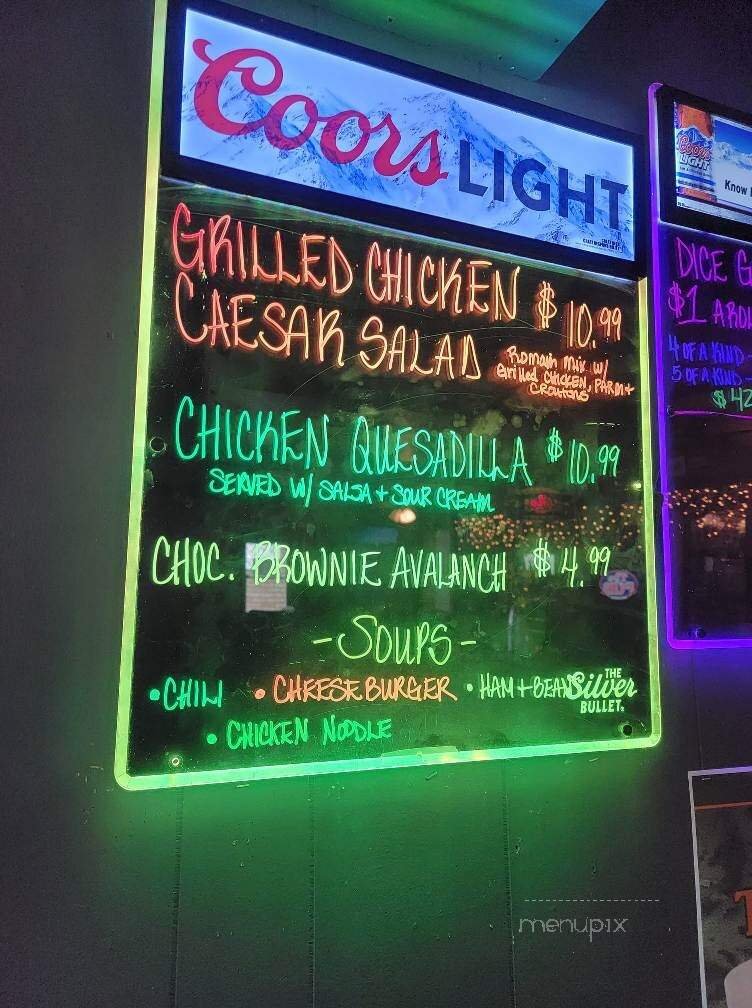 Coors LIGHT
GRILLED CHICKEN $10.99
CAESAR SALAD
Romain mix w/
Grilled CHICKEN, PARM +
CROUTONS
CHICKEN QUESADILLA $10.99
SERVED W/ SALSA + SOUR CREAM
CHOC. BROWNIE AVALANCH $4.99
- SOUPS -
• CHILI • CHEESEBURGER • HAM + BEAN
• CHICKEN NOODLE
THE
Silver
BULLET.
Coors
LIGHT
Know
DICE G
$1 AROU
4 OF A KIND
5 OF A KIND -
$42
T
menupix